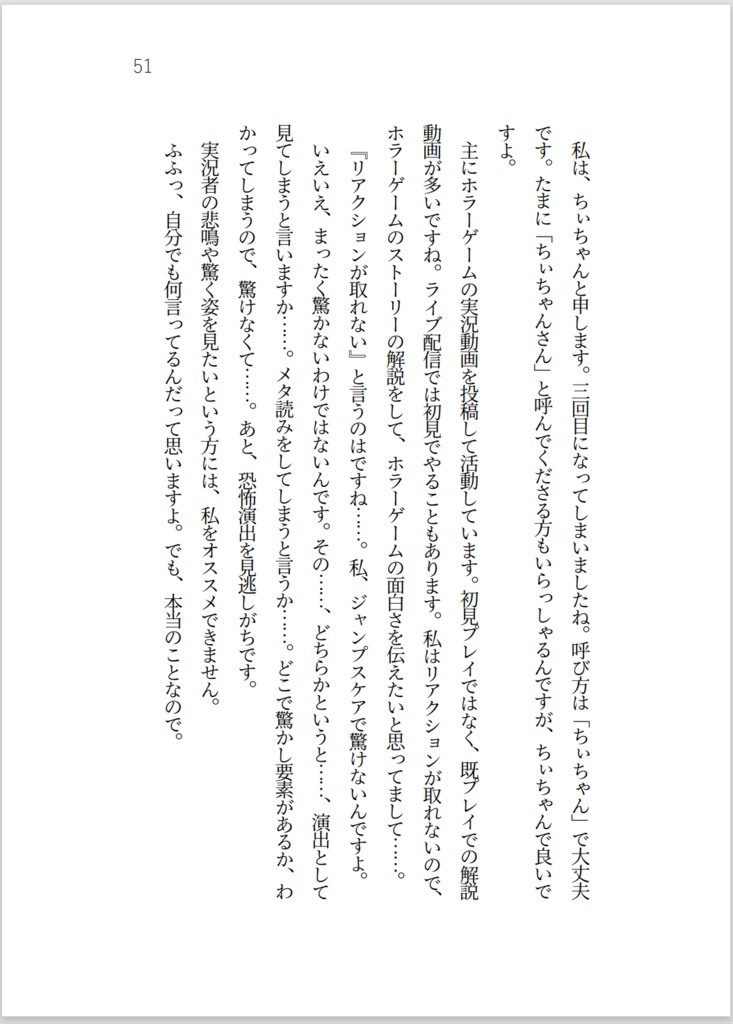 51
私は、ちぃちゃんと申します。三回目になってしまいましたね。呼び方は「ちぃちゃん」で大丈夫
です。たまに「ちぃちゃんさん」と呼んでくださる方もいらっしゃるんですが、ちぃちゃんで良いで
すよ。
主にホラーゲームの実況動画を投稿して活動しています。初見プレイではなく、既プレイでの解説
動画が多いですね。ライブ配信では初見でやることもあります。私はリアクションが取れないので、
ホラーゲームのストーリーの解説をして、ホラーゲームの面白さを伝えたいと思ってまして……。
『リアクションが取れない』と言うのはですね……。私、ジャンプスケアで驚けないんですよ。
いえいえ、まったく驚かないわけではないんです。その……、どちらかというと……、演出として
見てしまうと言いますか……。メタ読みをしてしまうと言うか……。どこで驚かし要素があるか、わ
かってしまうので、驚けなくて……。あと、恐怖演出を見逃しがちです。
実況者の悲鳴や驚く姿を見たいという方には、私をオススメできません。
ふふっ、自分でも何言ってるんだって思いますよ。でも、本当のことなので。